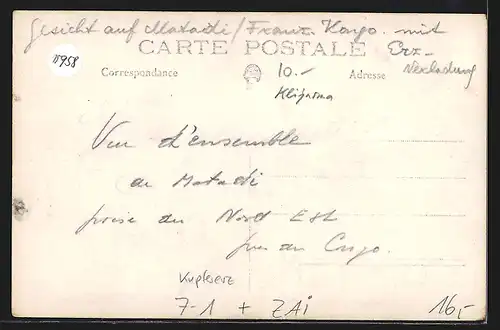 Gesicht auf Matadi / Franz. Kongo. mit
Erz-
Verladung
11958
CARTE POSTALE
Correspondance
Adresse
10.-
Vue d'ensemble
de Matadi
prise du Nord Est
du Congo.
Kupfererz
7-1 + ZAi
16,-